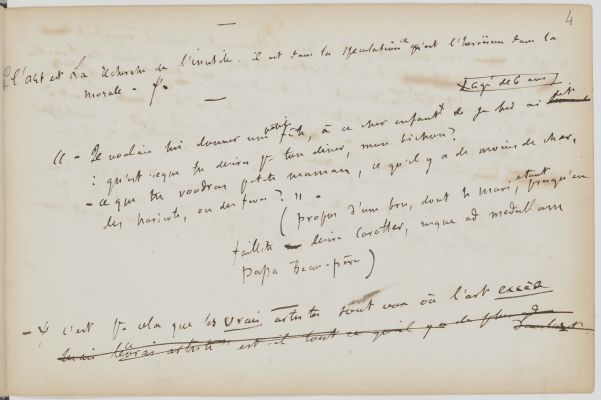 4
L'Art est la recherche de l'inutile. il est dans la spéculation ce qu'est l'héroïsme dans la
morale.
(âgé de 6 ans)
« – Je voulais lui donner une petite fête, à ce cher enfant & je lui ai dit
: qu'est-ce que tu desires pr ton diner, mon bichon?
– ce que tu voudras petite maman, ce qu'il y a de moins cher,
des haricots, ou des feves? » –
( propos d'une bru, dont le mari, étant presqu'en
faillite desire carotter, usque ad medullam
papa Beau-père)
– c'est pr cela que les vrais artistes sont ceux où l'art excède
mais les vrais artistes est-il tout ce qu'il y a de plus